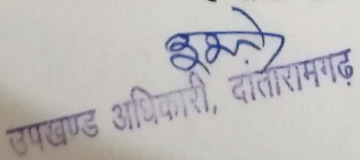 उपखण्ड अधिकारी, दांतारामगढ़